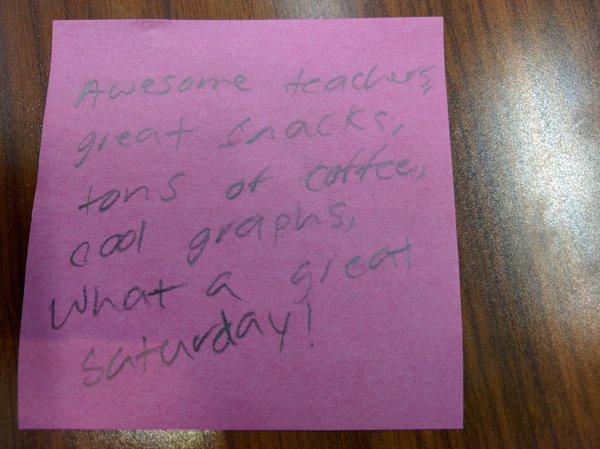 Awesome teachers,
great snacks,
tons of coffee,
cool graphs,
What a great
saturday!